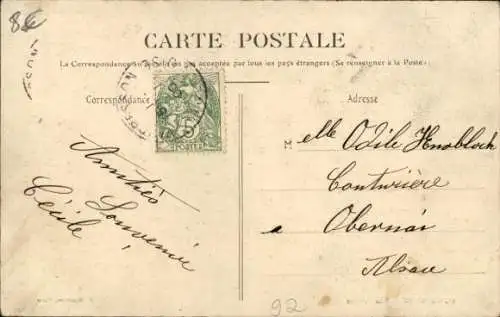 8€
CARTE POSTALE
La Correspondance au verso n'est pas acceptée par tous les pays étrangers (Se renseigner à la Poste)
Correspondance
Adresse
5
POSTES
Amitiés
Souvenir
Cécile
Melle Odile Knobloch
Couturière
a Obernai
Alsace
92